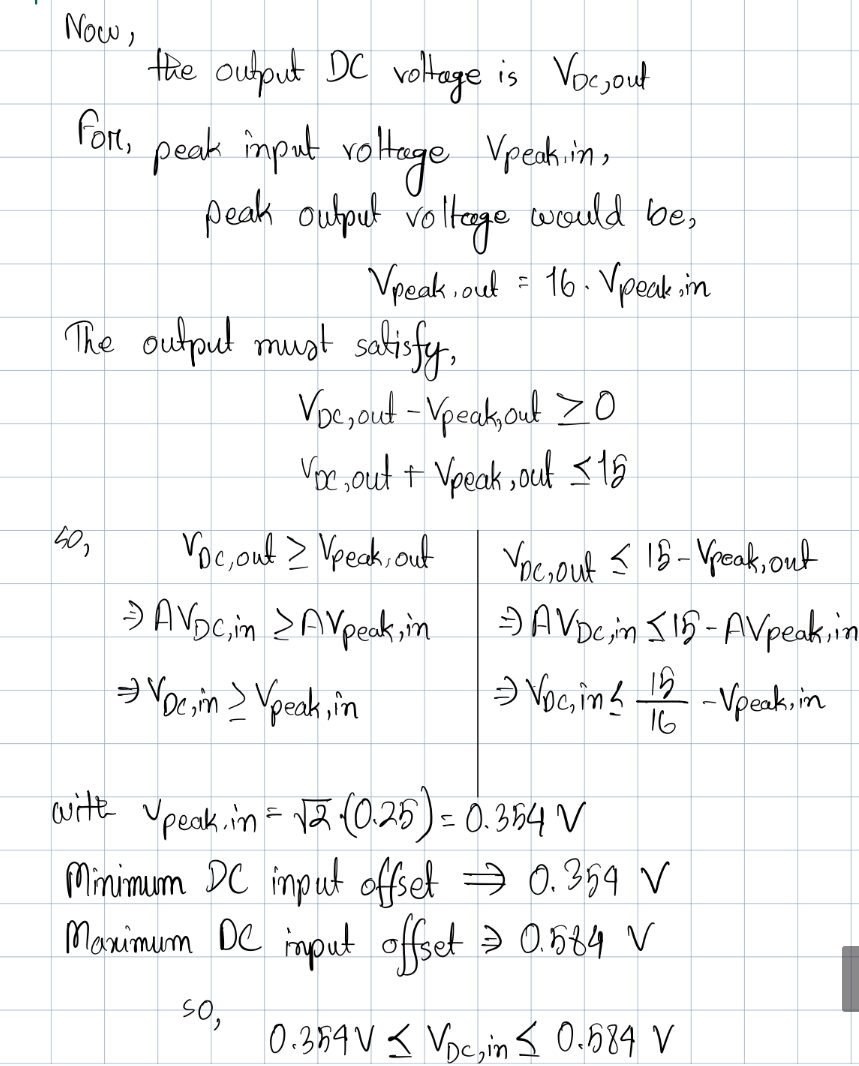 Now,
the output DC voltage is V_DC,out
For, peak input voltage V_peak,in,
peak output voltage would be,
V_peak,out = 16 · V_peak,in
The output must satisfy,
V_DC,out - V_peak,out ≥ 0
V_DC,out + V_peak,out ≤ 15
so,
V_DC,out ≥ V_peak,out
⇒ AV_DC,in ≥ AV_peak,in
⇒ V_DC,in ≥ V_peak,in
V_DC,out ≤ 15 - V_peak,out
⇒ AV_DC,in ≤ 15 - AV_peak,in
⇒ V_DC,in ≤ 15/16 - V_peak,in
with V_peak,in = √2·(0.25) = 0.354 V
Minimum DC input offset ⇒ 0.354 V
Maximum DC input offset ⇒ 0.584 V
so,
0.354 V ≤ V_DC,in ≤ 0.584 V